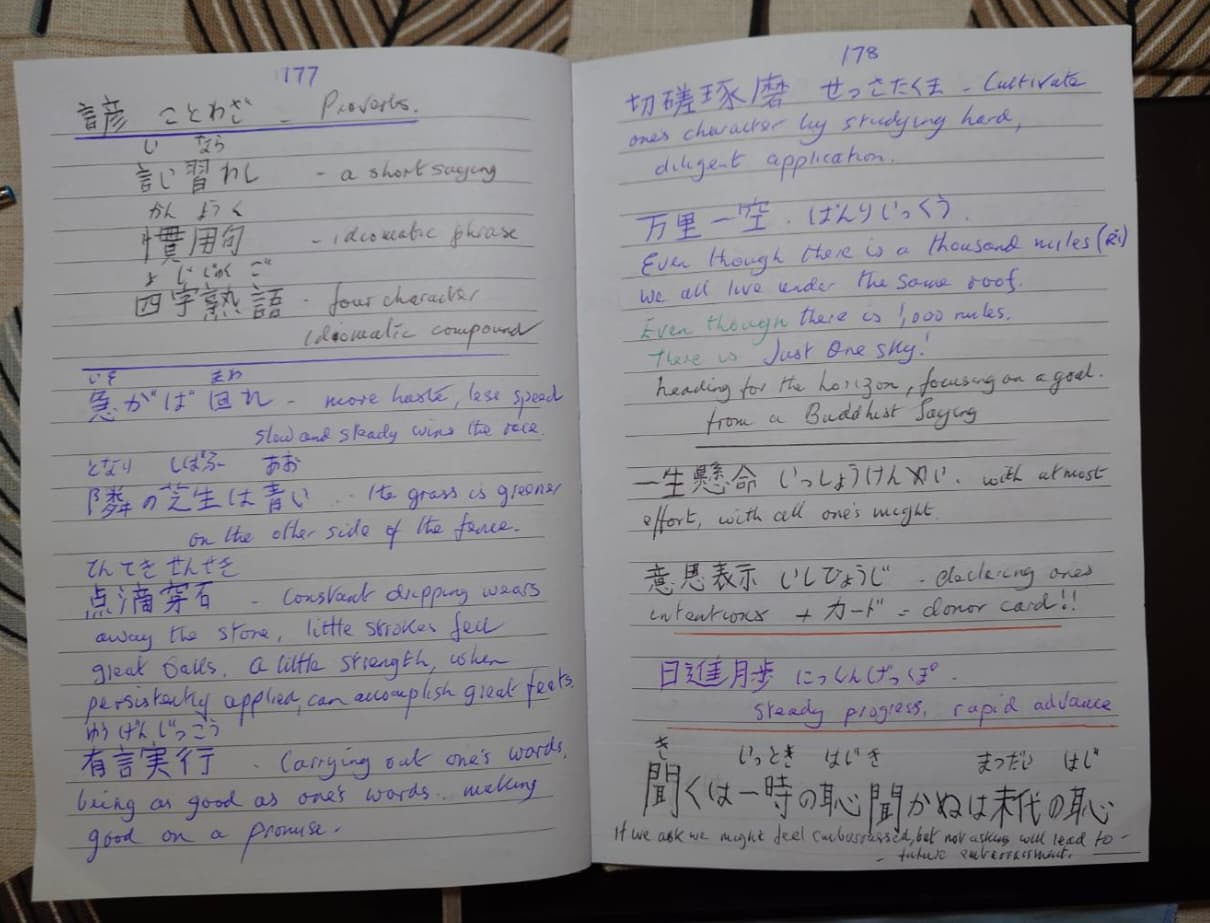 177
諺 ことわざ - Proverbs.
い なら
言い習わし - a short saying
かん よう く
慣用句 - idiomatic phrase
よ じ じゅく ご
四字熟語 - four character
idiomatic compound
いそ まわ
急がば回れ - more haste, less speed
slow and steady wins the race.
となり しばふ あお
隣の芝生は青い - the grass is greener
on the other side of the fence.
てんてき せんせき
点滴穿石 - constant dripping wears
away the stone, little strokes fell
great oaks. A little strength, when
persistently applied, can accomplish great feats.
ゆうげんじっこう
有言実行 - Carrying out one's words,
being as good as one's words. making
good on a promise.
178
切磋琢磨 せっさたくま - Cultivate
one's character by studying hard,
diligent application.
万里一空. ばんりいっくう.
Even though there is a thousand miles (Ri)
we all live under the same roof.
Even though there is 1,000 miles,
There is Just One sky!
heading for the horizon, focusing on a goal.
from a Buddhist Saying
一生懸命 いっしょうけんめい. with atmost
effort, with all one's might.
意思表示 いしひょうじ - declaring ones
intentions + カード = donor card!!
日進月歩 にっしんげっぽ.
steady progress, rapid advance
き いっとき はじ き まつだい はじ
聞くは一時の恥聞かぬは末代の恥
If we ask we might feel embarrassed, but not asking will lead to -
- future embarrassment.